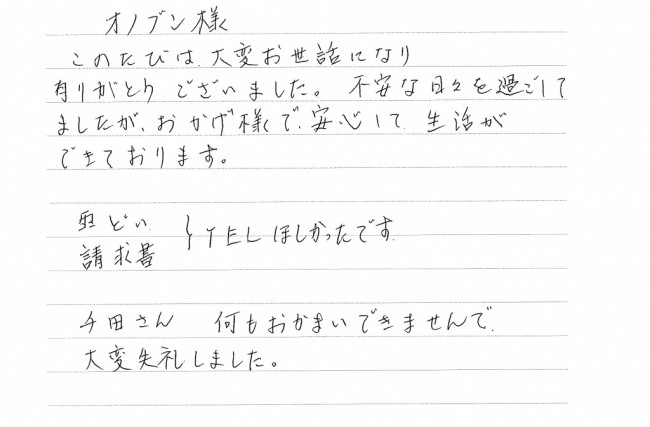 オノブン様
このたびは、大変お世話になり
有りがとうございました。不安な日々を過ごして
ましたが、おかげ様で、安心して生活が
できております。
雨どい
請求書 } TELほしかったです。
千田さん 何もおかまいできませんんで、
大変失礼しました。